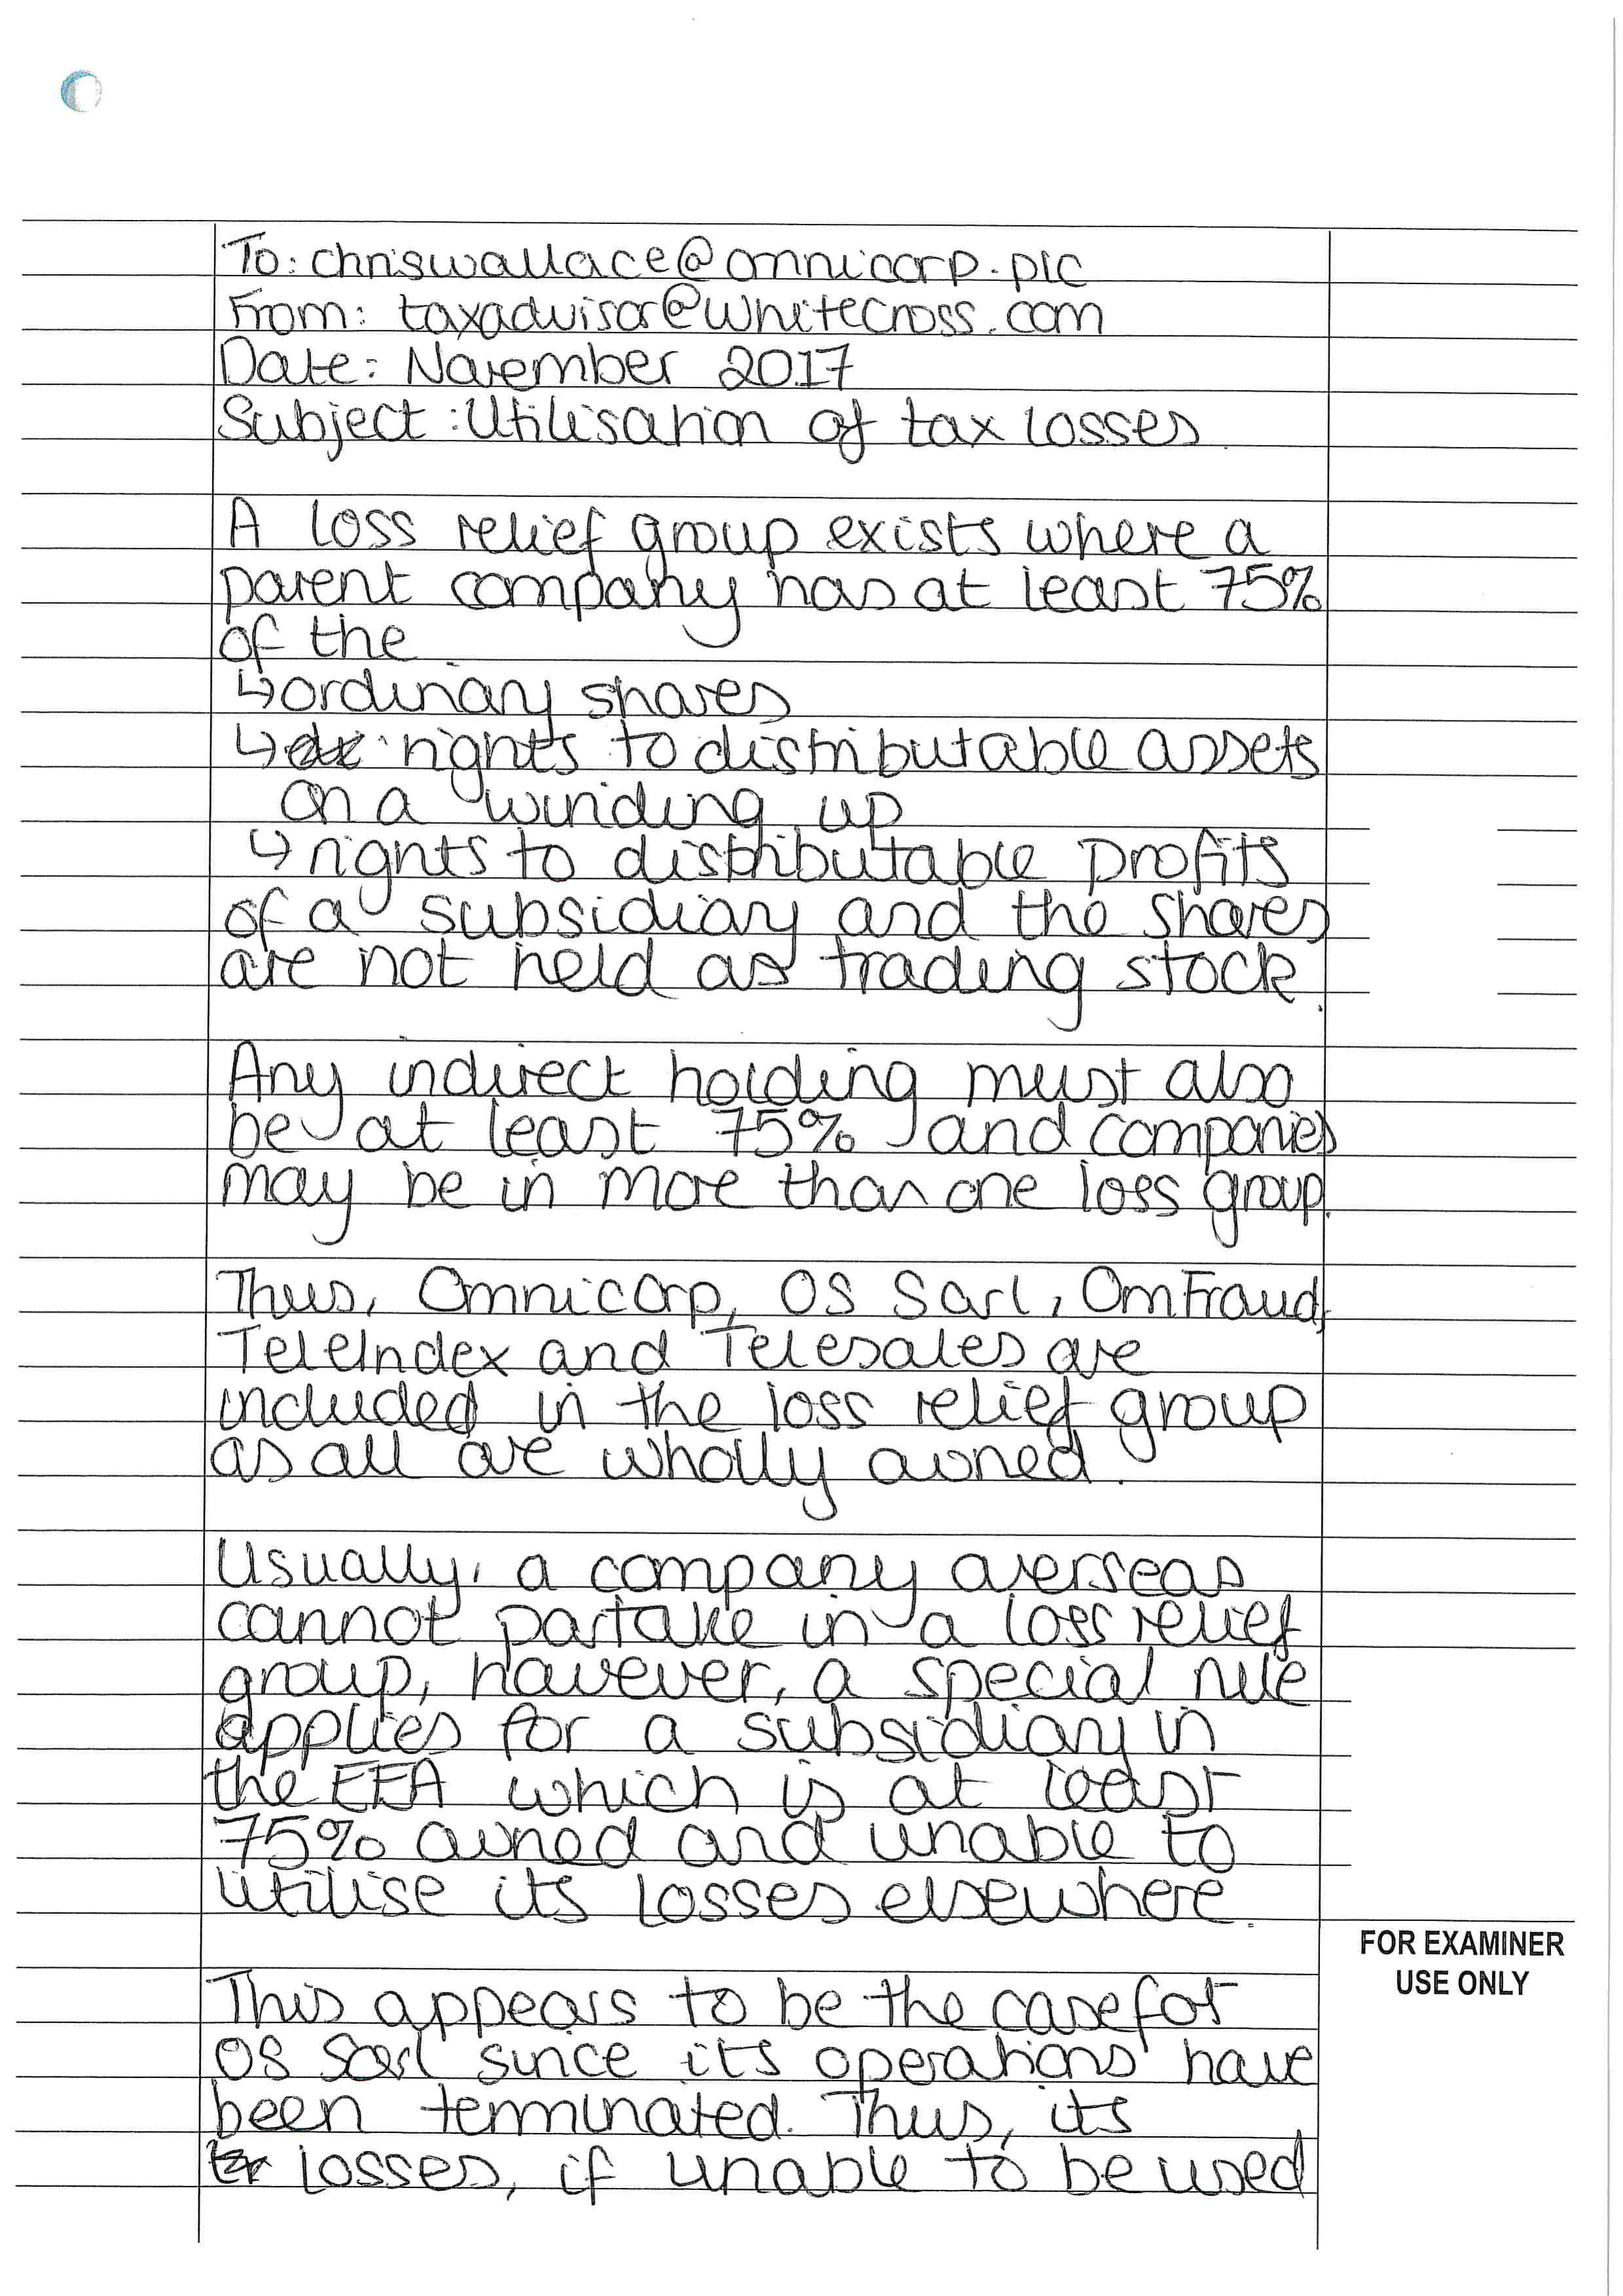 To: chriswallace@omnicorp.plc
From: taxadvisor@whitecross.com
Date: November 2017
Subject: Utilisation of tax losses.
A loss relief group exists where a
parent company has at least 75%
of the
↳ ordinary shares
↳ rights to distributable assets
on a winding up
↳ rights to distributable profits
of a subsidiary and the shares
are not held as trading stock.
Any indirect holding must also
be at least 75% and companies
may be in more than one loss group.
Thus, Omnicorp, OS Sarl, OmFraud,
TeleIndex and Telesales are
included in the loss relief group
as all are wholly owned.
Usually, a company overseas
cannot partake in a loss relief
group, however, a special rule
applies for a subsidiary in
the EEA which is at least
75% owned and unable to
utilise its losses elsewhere.
FOR EXAMINER
USE ONLY
This appears to be the case for
OS Sarl since its operations have
been terminated. Thus, its
losses, if unable to be used